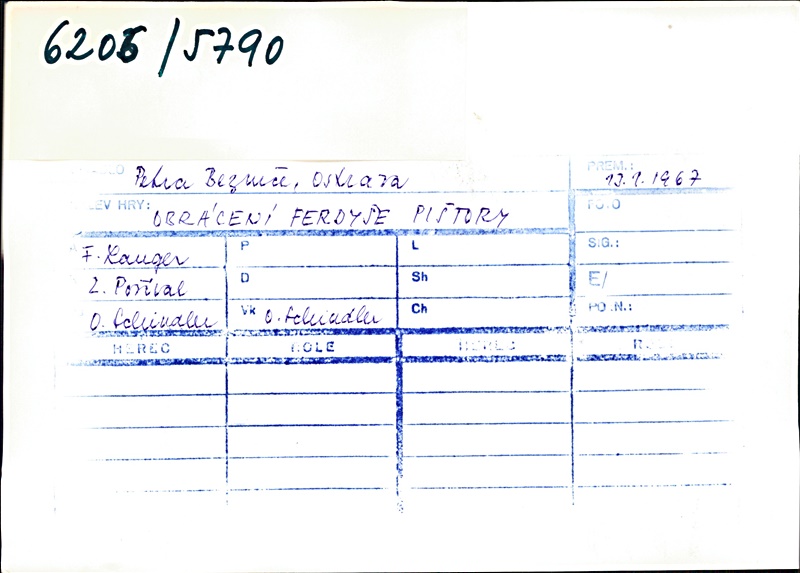 6206/5790
Petra Bezruče, Ostrava
PREM.: 13.1.1967
EV HRY: OBRÁCENÍ FERDYŠE PIŠTORY
FOTO
F. Langer P L SIG.:
Z. Pošíval D Sh E/
O. Schindler Vk O. Schindler Ch PO.N.:
HEREC ROLE HEREC ROLE